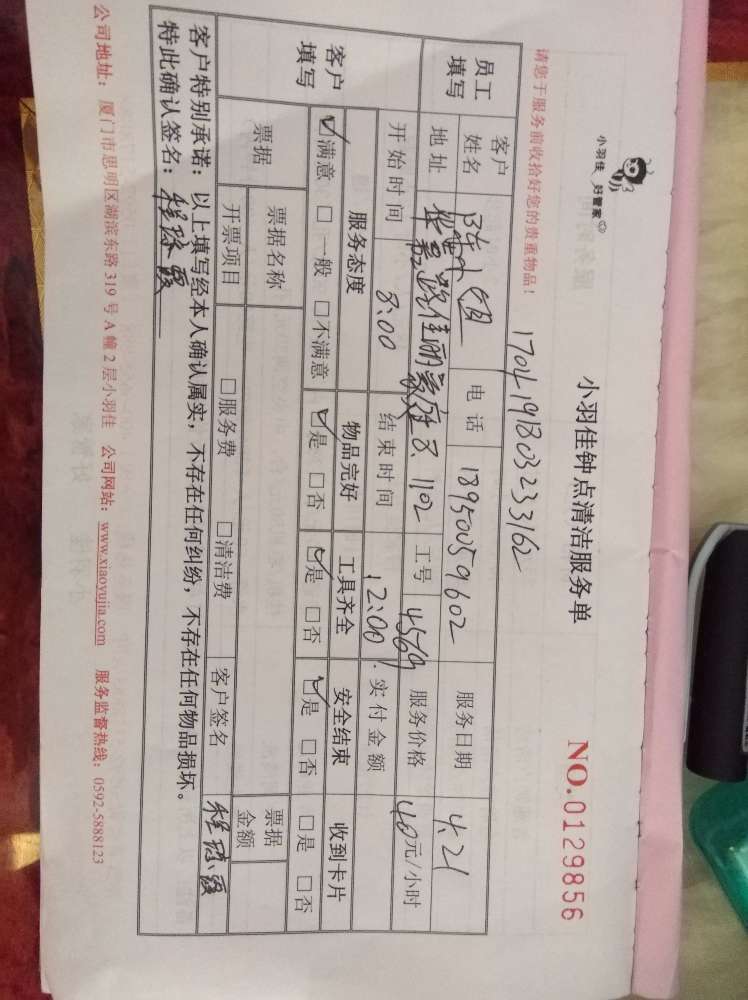 小羽佳 好管家
小羽佳钟点清洁服务单
NO.0129856
请您于服务前收拾好您的贵重物品！
1704191803233162
员工填写
客户姓名 小姐 电话 18950059602 服务日期 4.21
地址 路佳丽豪庭 8. 1102 工号 4569 服务价格 40元/小时
开始时间 8:00 结束时间 12:00 实付金额
客户填写
服务态度 物品完好 工具齐全 安全结束 收到卡片
☑满意 □一般 □不满意 ☑是 □否 ☑是 □否 ☑是 □否 □是 □否
票据 票据名称 票据金额
开票项目 □服务费 □清洁费 客户签名 程琼霞
客户特别承诺：以上填写经本人确认属实，不存在任何纠纷，不存在任何物品损坏。
特此确认签名：程琼霞
公司地址：厦门市思明区湖滨东路319号A幢2层小羽佳 公司网站：www.xiaoyujia.com 服务监督热线：0592-5888123